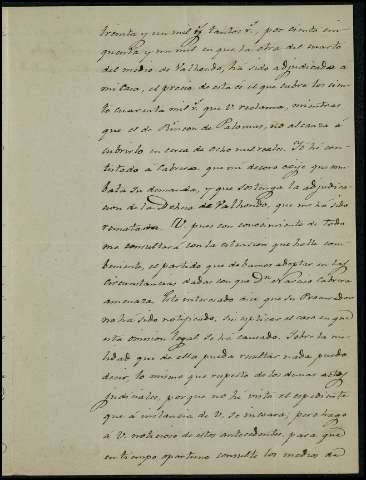 treinta y un mil y tantos r.s, por ciento cin-
quenta y un mil en que la otra del cuarto
del medio de Valhondo, ha sido adjudicada a
mi Casa, el precio de esta es el que cubre los cien-
to cuarenta mil r.s que V. reclama, mientras
que el de Rincon de Palomas, no alcanza á
cubrirlo en cerca de ocho mil reales. Yo hé con-
testado a Cabrera, que mi decoro exije que com-
bata su demanda, y que sostenga la adjudica-
cion de la Dehesa de Valhondo, que me ha sido
rematada. V. pues con conocimiento de todo
me consultará con la relacion que halle con-
beniente, el partido que debamos adoptar en las
circunstancias dadas con que Dn Cabrera
amenaza. Este interesado dice que su Procurador
no ha sido notificado, su esplica el caso en que
esta omision legal se ha causado. Sobre la nu-
lidad que de ella pueda resultar nada puedo
decir, lo mismo que respecto de los demas actos
judiciales, porque no he visto el espediente
que á instancia de V. se incoara; pero hago
a V. noticioso de estos antecedentes, para que
en tiempo oportuno consulte los medios de